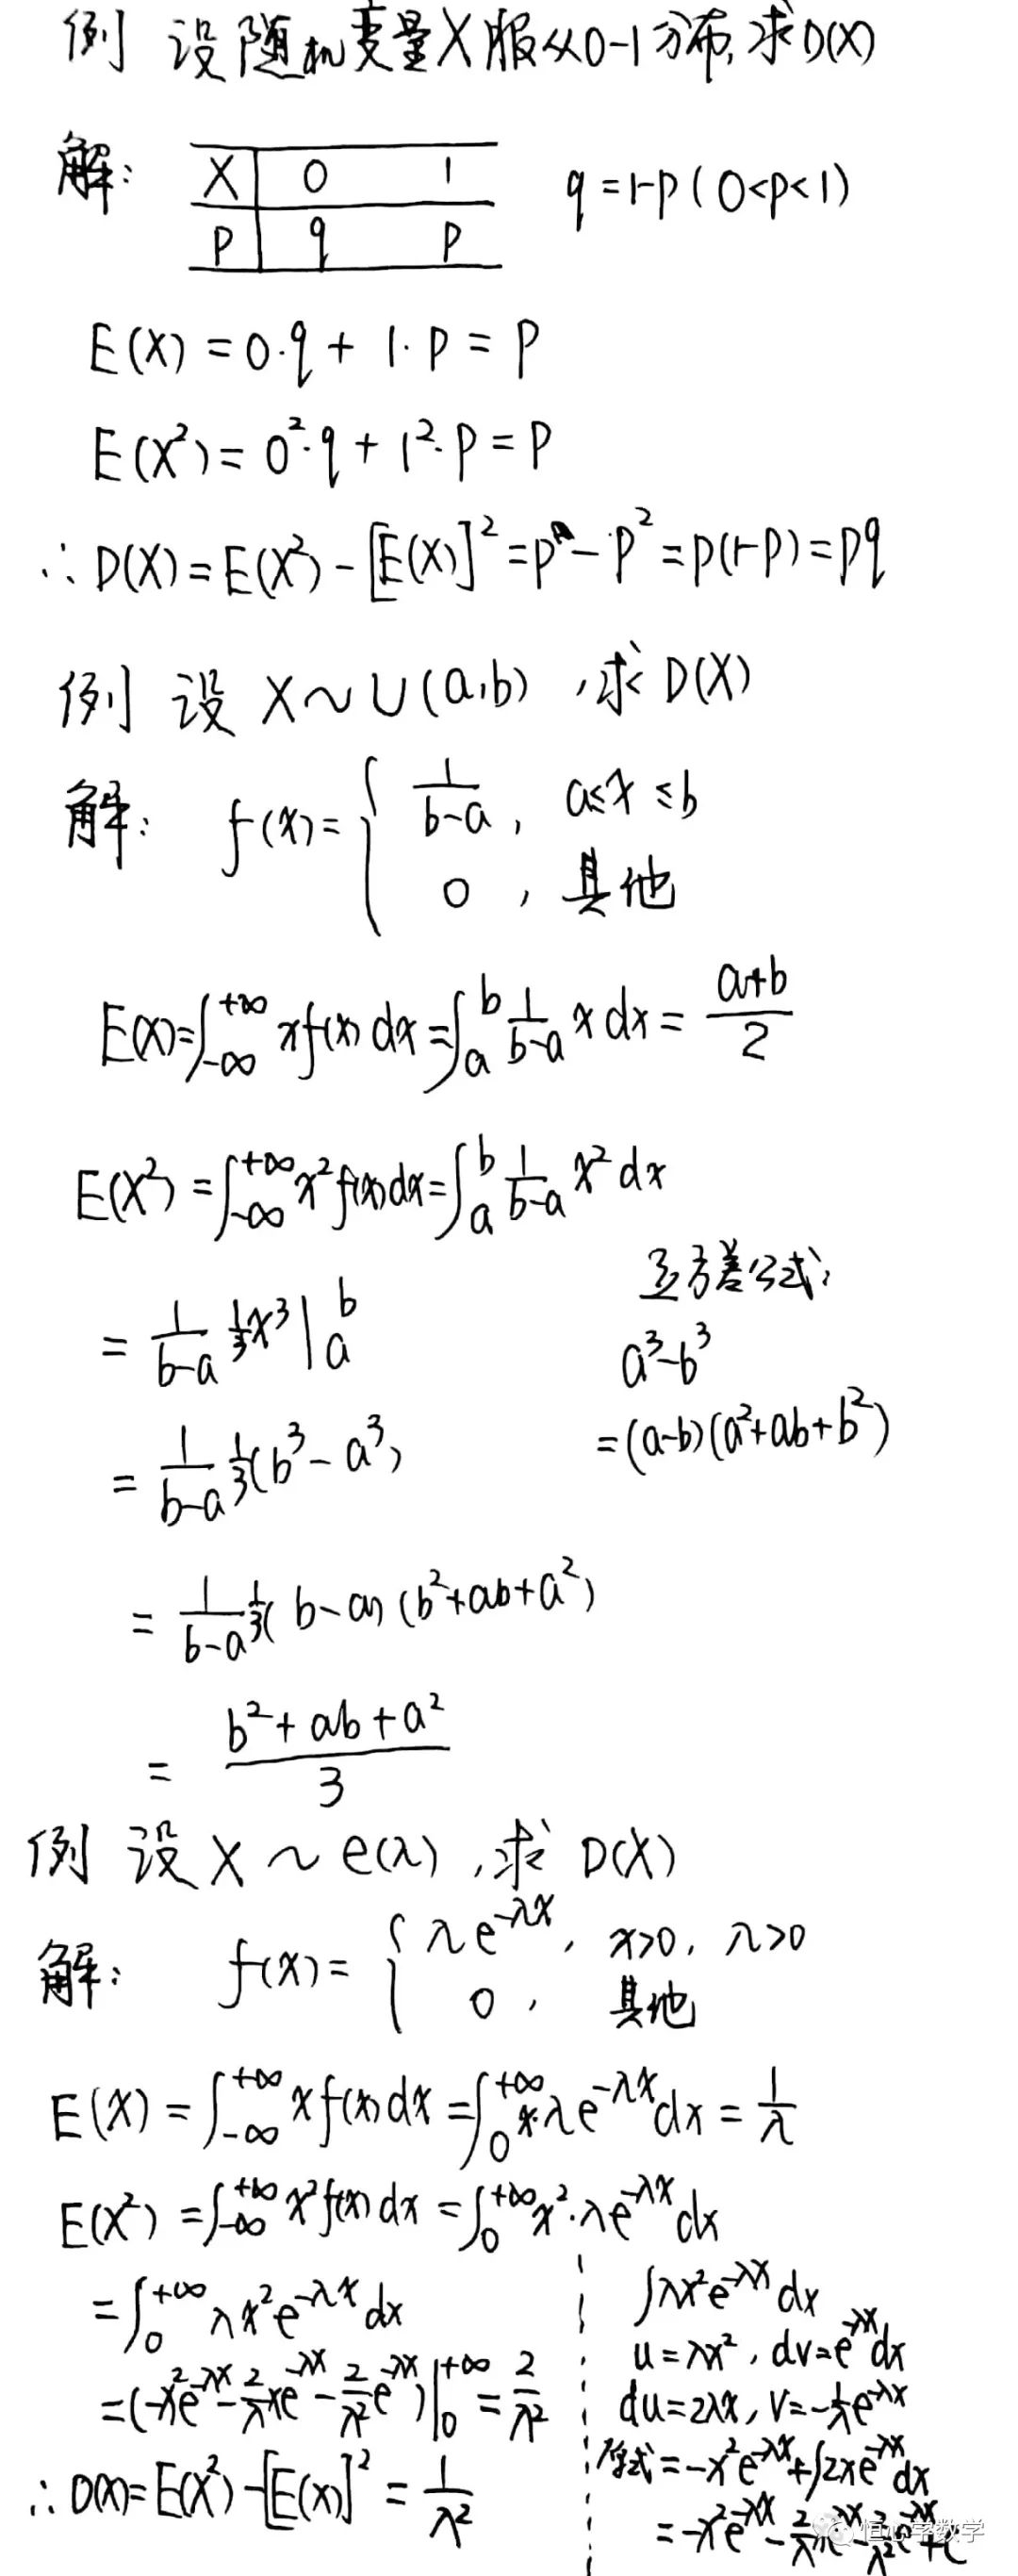 例 设随机变量X服从0-1分布,求D(X)
解: X 0 1 q=1-p(0<p<1)
P q p
E(X)=0·q+1·p=p
E(X²)=0²·q+1²·p=p
∴D(X)=E(X²)-[E(X)]²=p-p²=p(1-p)=pq
例 设 X~U(a,b),求D(X)
解: f(x)={ 1/(b-a), a≤x≤b
0, 其他
E(X)=∫_{-∞}^{+∞} xf(x)dx=∫_a^b 1/(b-a) x dx=(a+b)/2
E(X²)=∫_{-∞}^{+∞} x²f(x)dx=∫_a^b 1/(b-a) x² dx
= 1/(b-a) 1/3 x³|_a^b
= 1/(b-a) 1/3(b³-a³)
= 1/(b-a) 1/3(b-a)(b²+ab+a²)
= (b²+ab+a²)/3
立方差公式:
a³-b³
=(a-b)(a²+ab+b²)
例 设X~e(λ),求D(X)
解: f(x)={ λe^{-λx}, x>0, λ>0
0, 其他
E(X)=∫_{-∞}^{+∞} xf(x)dx=∫_0^{+∞} x·λe^{-λx}dx=1/λ
E(X²)=∫_{-∞}^{+∞} x²f(x)dx=∫_0^{+∞} x²·λe^{-λx}dx
=∫_0^{+∞} λx²e^{-λx}dx
=(-x²e^{-λx}-2/λ xe^{-λx}-2/λ² e^{-λx})|_0^{+∞}=2/λ²
∴D(X)=E(X²)-[E(X)]²=1/λ²
∫λx²e^{-λx}dx
u=λx², dv=e^{-λx}dx
du=2λx, v=-1/λ e^{-λx}
原式=-x²e^{-λx}+∫2xe^{-λx}dx
=-x²e^{-λx}-2/λ xe^{-λx}-2/λ² e^{-λx}+c
恒心学数学